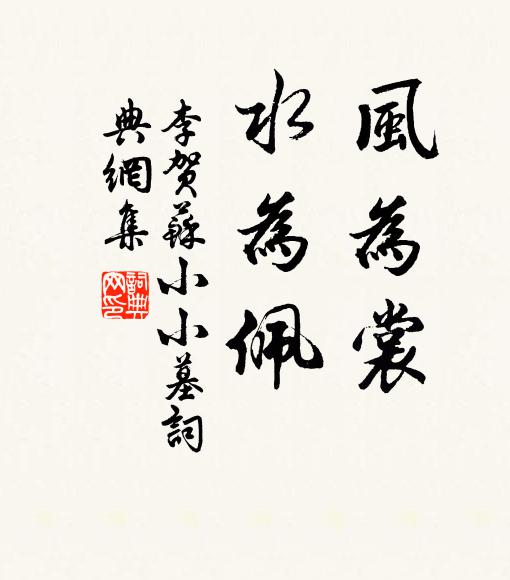 風為裳
水為佩
李賀蘇小小墓詞
典網集
詞典網印